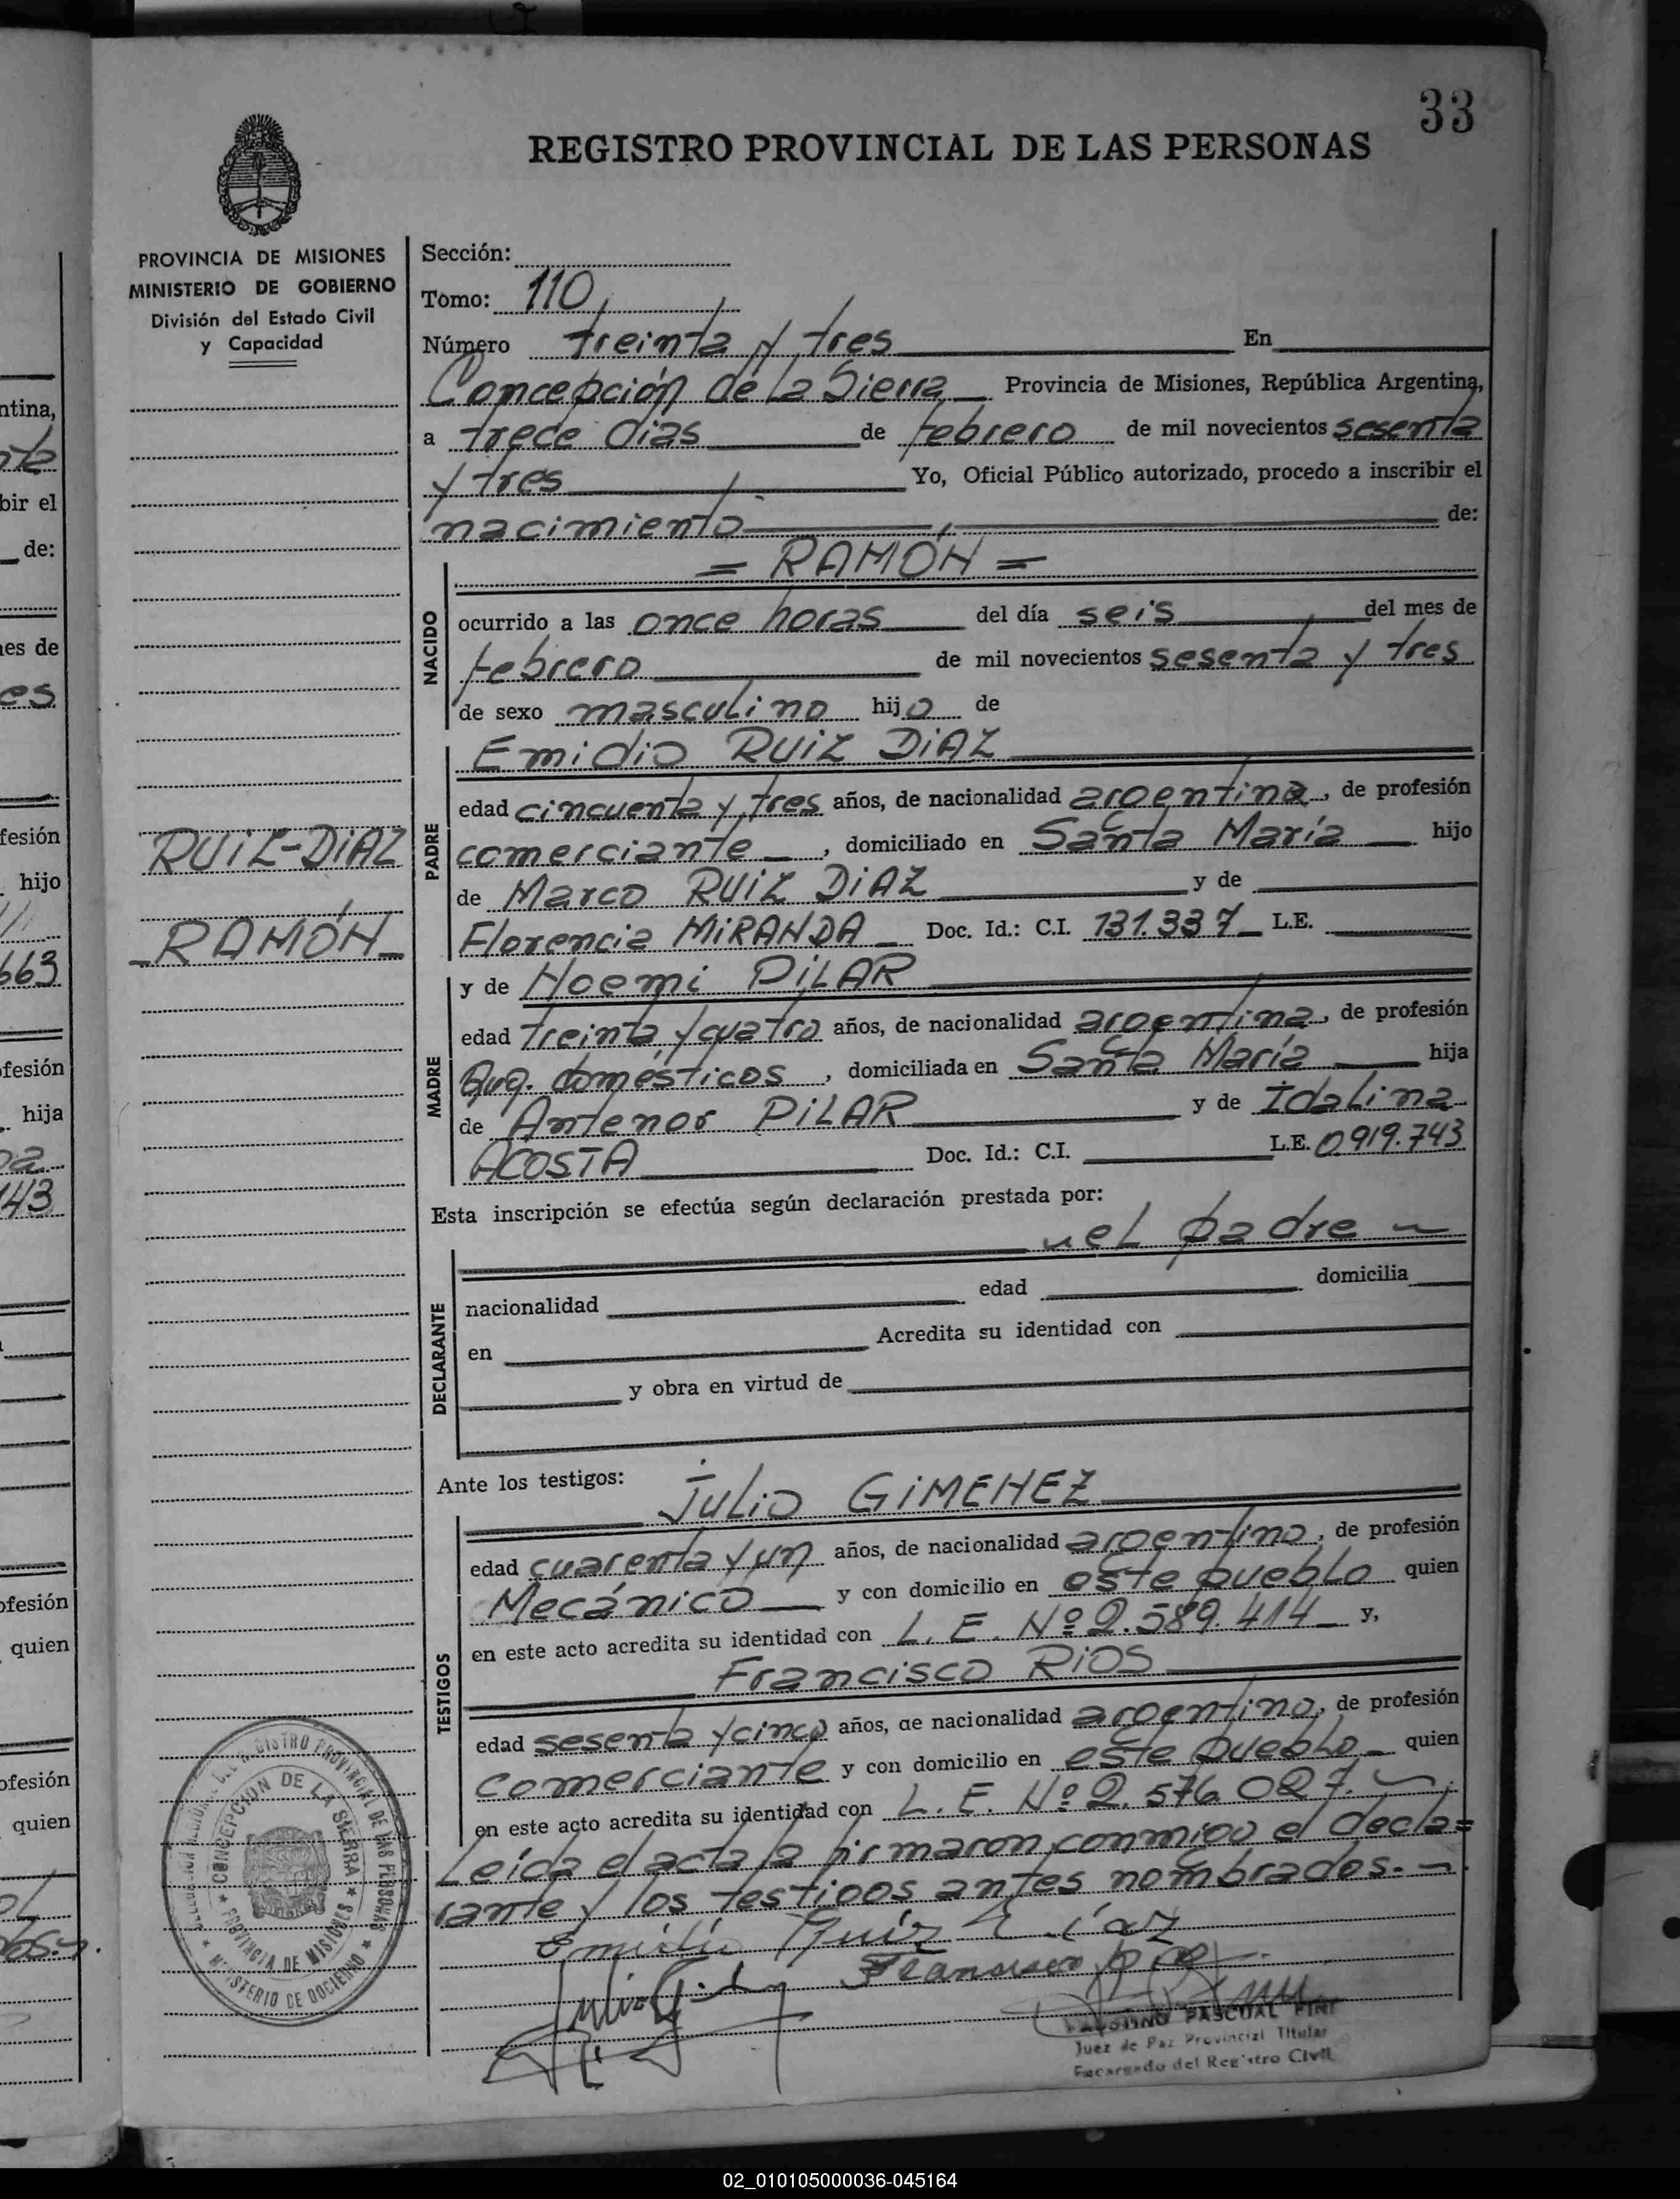 33
REGISTRO PROVINCIAL DE LAS PERSONAS
PROVINCIA DE MISIONES
MINISTERIO DE GOBIERNO
División del Estado Civil
y Capacidad
RUIZ-DIAZ
RAMÓN
Sección:
Tomo: 110
Número treinta y tres En
Concepción de la Sierra Provincia de Misiones, República Argentina,
a trece días de febrero de mil novecientos sesenta
y tres Yo, Oficial Público autorizado, procedo a inscribir el
nacimiento de:
= RAMÓN =
NACIDO
ocurrido a las once horas del día seis del mes de
febrero de mil novecientos sesenta y tres
de sexo masculino hijo de
PADRE
Emidio RUIZ DIAZ
edad cincuenta y tres años, de nacionalidad argentina, de profesión
comerciante, domiciliado en Santa María hijo
de Marco RUIZ DIAZ y de
Florencia MIRANDA Doc. Id.: C.I. 131.337 L.E.
MADRE
y de Noemi PILAR
edad treinta y cuatro años, de nacionalidad argentina, de profesión
Quq. domésticos, domiciliada en Santa María hija
de Antenor PILAR y de Idalina
ACOSTA Doc. Id.: C.I. L.E. 0919.743
Esta inscripción se efectúa según declaración prestada por:
el padre
DECLARANTE
nacionalidad edad domicilia
en Acredita su identidad con
y obra en virtud de
Ante los testigos: Julio GIMENEZ
TESTIGOS
edad cuarenta y un años, de nacionalidad argentino, de profesión
Mecánico y con domicilio en este pueblo quien
en este acto acredita su identidad con L. E. Nº 2.589.414 y,
Francisco RIOS
edad sesenta y cinco años, de nacionalidad argentino, de profesión
comerciante y con domicilio en este pueblo quien
en este acto acredita su identidad con L. E. Nº 2.576.027.
Leida el acta la firmaron conmigo el decla=
rante y los testigos antes nombrados.-
Emidio Ruiz Diaz
Francisco
Julio
PASCUAL PINI
Juez de Paz Provincial Titular
Encargado del Registro Civil
REGISTRO PROVINCIAL DE LAS PERSONAS
CONCEPCION DE LA SIERRA
PROVINCIA DE MISIONES
MINISTERIO DE GOBIERNO
02_010105000036-045164